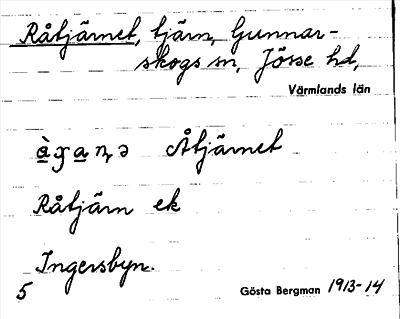 Råtjärnet, tjärn, Gunnar-
skogs sn, Jösse hd,
Värmlands län
Åtjärnet
Råtjärn ek
Ingersbyn.
5
Gösta Bergman 1913-14